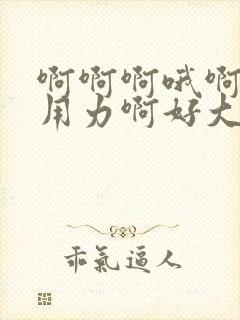 啊啊啊哦啊
用力啊好大
乖氣逼人